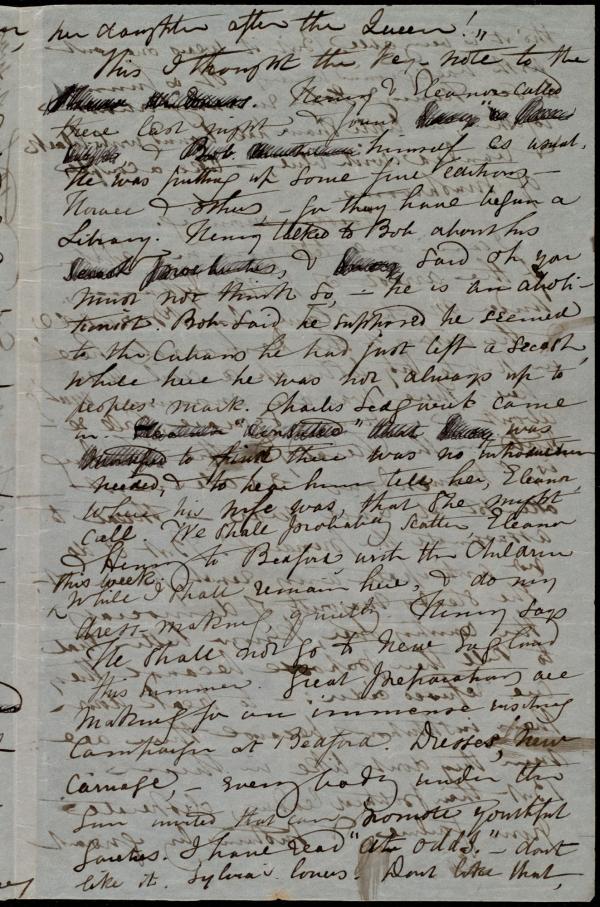 her daughter after the Queen!"
This I thought the key-note to the
Henry & Eleanor called
there last night & found
& Bob himself as usual.
He was putting up some fine editions -
Horace & others, for they have begun a
Library. Henry talked to Bob about his
& said oh you
must not think so, - he is an aboli-
tionist. Bob said he supposed he seemed
to the Cubans he had just left a Secesh,
while here he was not always up to
peoples' mark. Charles Sedgwick came
in. was
to find there was no introduction
needed, & to hear him tell her, Eleanor
where his wife was, that she might
call. We shall probably scatter, Eleanor
& Henry to Bedford with the Children
this week.
While I shall remain here, & do my
dress-making, quietly. Henry says
He shall not go to New England
this summer. Great preparations are
making for an immense visiting
Campaign at Bedford. Dresses, new
Carriage, - every body under the
Sun invited that can promote youthful
gaieties. I have read "At odds." - dont
like it. Sylvia's lovers. Dont like that,